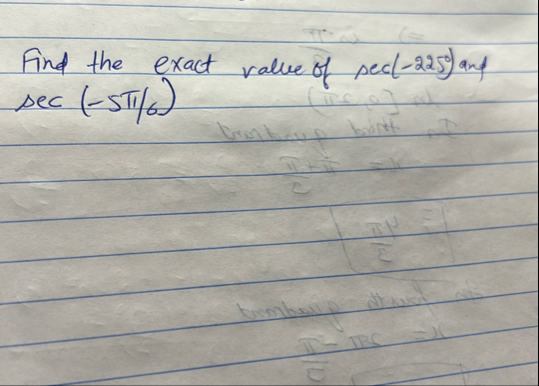 Find the exact value of sec(-225°) and
sec (-5π/6)